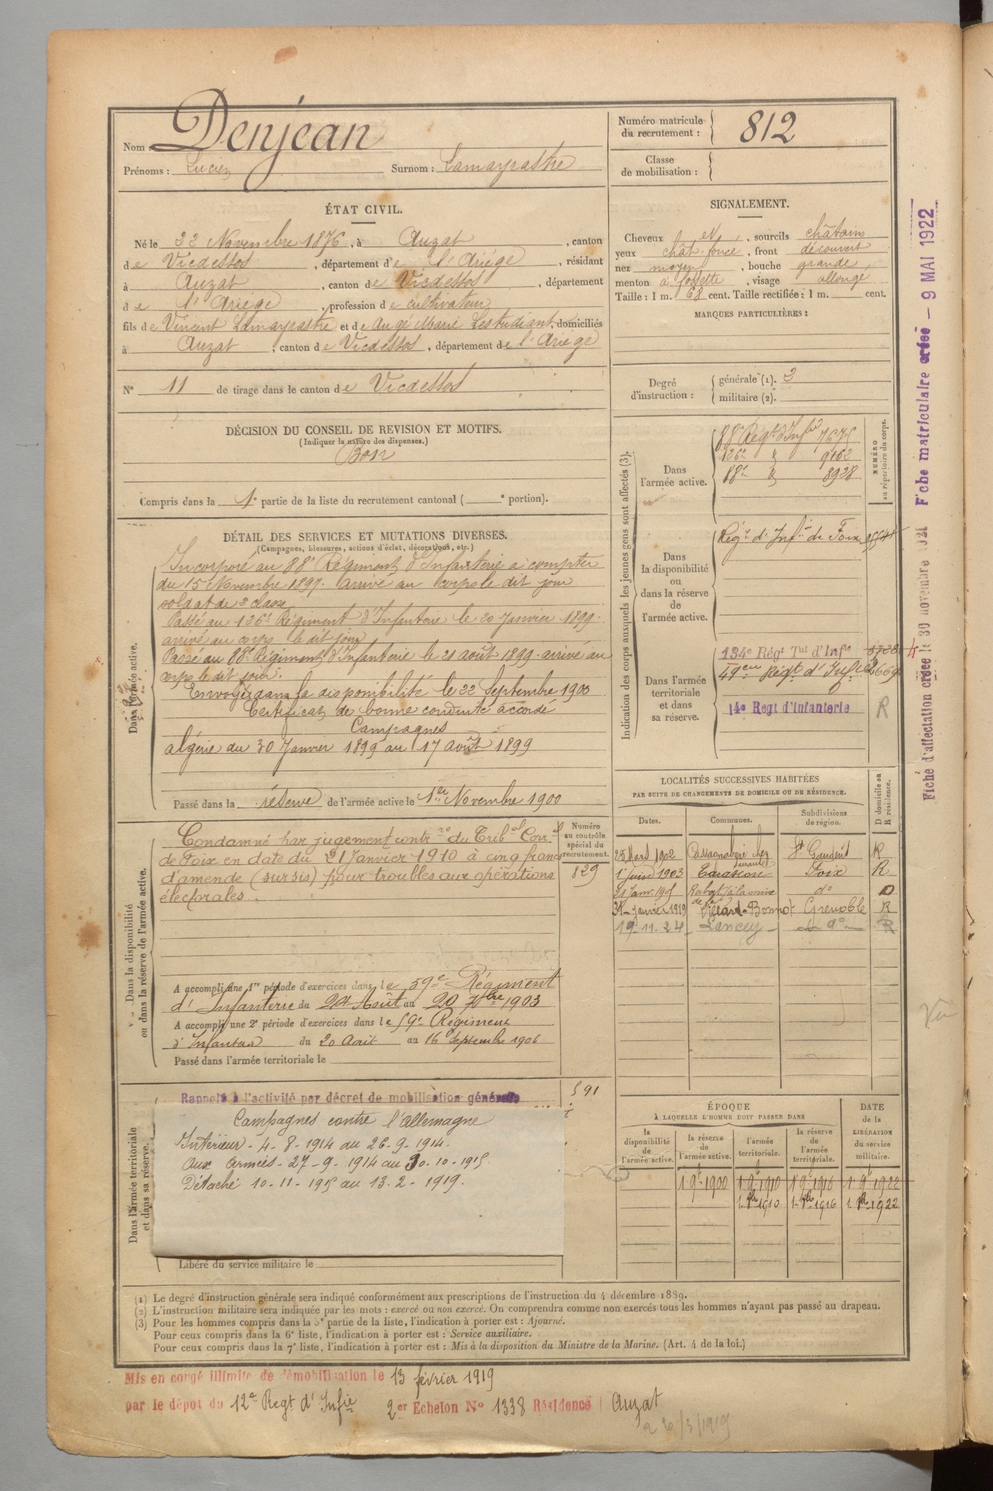 Nom : Denjean
Prénoms : Lucien Surnom : Lamayrastre
Numéro matricule du recrutement : 812
Classe de mobilisation :
ÉTAT CIVIL.
Né le 22 Novembre 1876, à Auzat, canton
de Vicdessos, département de l'Ariège, résidant
à Auzat, canton de Vicdessos, département
de l'Ariège, profession de cultivateur
fils de Vincent Lamayrastre et de Angé Marie Lestudiant, domiciliés
à Auzat, canton de Vicdessos, département de l'Ariège
N° 11 de tirage dans le canton de Vicdessos
SIGNALEMENT.
Cheveux et, sourcils châtains
yeux chât. foncé, front découvert
nez moyen, bouche grande
menton à fossette, visage allongé
Taille : 1 m. 68 cent. Taille rectifiée : 1 m. cent.
MARQUES PARTICULIÈRES :
Degré d'instruction : générale (1). 3
militaire (2).
DÉCISION DU CONSEIL DE REVISION ET MOTIFS.
(Indiquer la nature des dispenses.)
Bon
Compris dans la 1e partie de la liste du recrutement cantonal ( e portion).
DÉTAIL DES SERVICES ET MUTATIONS DIVERSES.
(Campagnes, blessures, actions d'éclat, décorations, etc.)
Dans l'armée active.
Incorporé au 88e Régiment d'Infanterie à compter
du 15 Novembre 1897. Arrivé au Corps le dit jour
soldat de 2e classe
Passé au 126e Régiment d'Infanterie le 20 Janvier 1899
arrivé au corps le dit jour
Passé au 88e Régiment d'Infanterie le 21 août 1899. arrivé au
corps le dit jour.
Envoyé dans la disponibilité le 22 Septembre 1900
Certificat de bonne conduite accordé
Campagnes
algérie du 30 Janvier 1899 au 17 août 1899
Passé dans la réserve de l'armée active le 1er Novembre 1900
Indication des corps auxquels les jeunes gens sont affectés (3).
NUMÉRO au répertoire du corps.
Dans l'armée active.
88e Régt d'Infie 7675
126e d° 9162
88e d° 8928
Dans la disponibilité ou dans la réserve de l'armée active.
Régt d'Infie de Foix
Dans l'armée territoriale et dans sa réserve.
134e Régt Tal d'Infie
49eme Régt d'Infie
14e Regt d'Infanterie R
Dans la disponibilité ou dans la réserve de l'armée active.
Numéro au contrôle spécial du recrutement.
129
Condamné par jugement contre du Tribal Corel
de Foix en date du 21 Janvier 1910 à cinq francs
d'amende (sursis) pour troubles aux opérations
électorales.
A accompli une 1re période d'exercices dans le 59e Régiment
d'Infanterie du 24 Août au 20 7bre 1903
A accompli une 2e période d'exercices dans le 59e Régiment
d'Infanterie du 20 Août au 16 Septembre 1906
Passé dans l'armée territoriale le
LOCALITÉS SUCCESSIVES HABITÉES
PAR SUITE DE CHANGEMENTS DE DOMICILE OU DE RÉSIDENCE.
Dates. Communes. Subdivisions de région. D domicile ou R résidence.
23 Mars 1902 St Gaudens R
1er Juin 1903 Tarascon Foix R
Rabat d° D
31 Janvier 1919 Villard-Bonnot Grenoble R
19.11.24 Lancey d° R
Dans l'armée territoriale et dans sa réserve.
591
Rappelé à l'activité par décret de mobilisation générale
Campagnes contre l'Allemagne
Intérieur - 4-8-1914 au 26-9-1914.
Aux Armées - 27-9-1914 au 30-10-1915
Détaché 10-11-1915 au 13-2-1919.
Libéré du service militaire le
ÉPOQUE
À LAQUELLE L'HOMME DOIT PASSER DANS
DATE de la LIBÉRATION du service militaire.
la disponibilité de l'armée active. la réserve de l'armée active. l'armée territoriale. la réserve de l'armée territoriale.
1 9bre 1900 1 9bre 1910 1 9bre 1916 1 9bre 1922
1 8bre 1910 1 8bre 1916 1 8bre 1922
(1) Le degré d'instruction générale sera indiqué conformément aux prescriptions de l'instruction du 4 décembre 1889.
(2) L'instruction militaire sera indiquée par les mots : exercé ou non exercé. On comprendra comme non exercés tous les hommes n'ayant pas passé au drapeau.
(3) Pour les hommes compris dans la 5e partie de la liste, l'indication à porter est : Ajourné.
Pour ceux compris dans la 6e liste, l'indication à porter est : Service auxiliaire.
Pour ceux compris dans la 7e liste, l'indication à porter est : Mis à la disposition du Ministre de la Marine. (Art. 4 de la loi.)
Mis en congé illimité de démobilisation le 13 février 1919
par le dépôt du 12e Regt d'Infie 2er Échelon N° 1338 Résidence Auzat
Fiche d'affectation créée le 30 novembre 1921 Fiche matriculaire créée - 9 MAI 1922